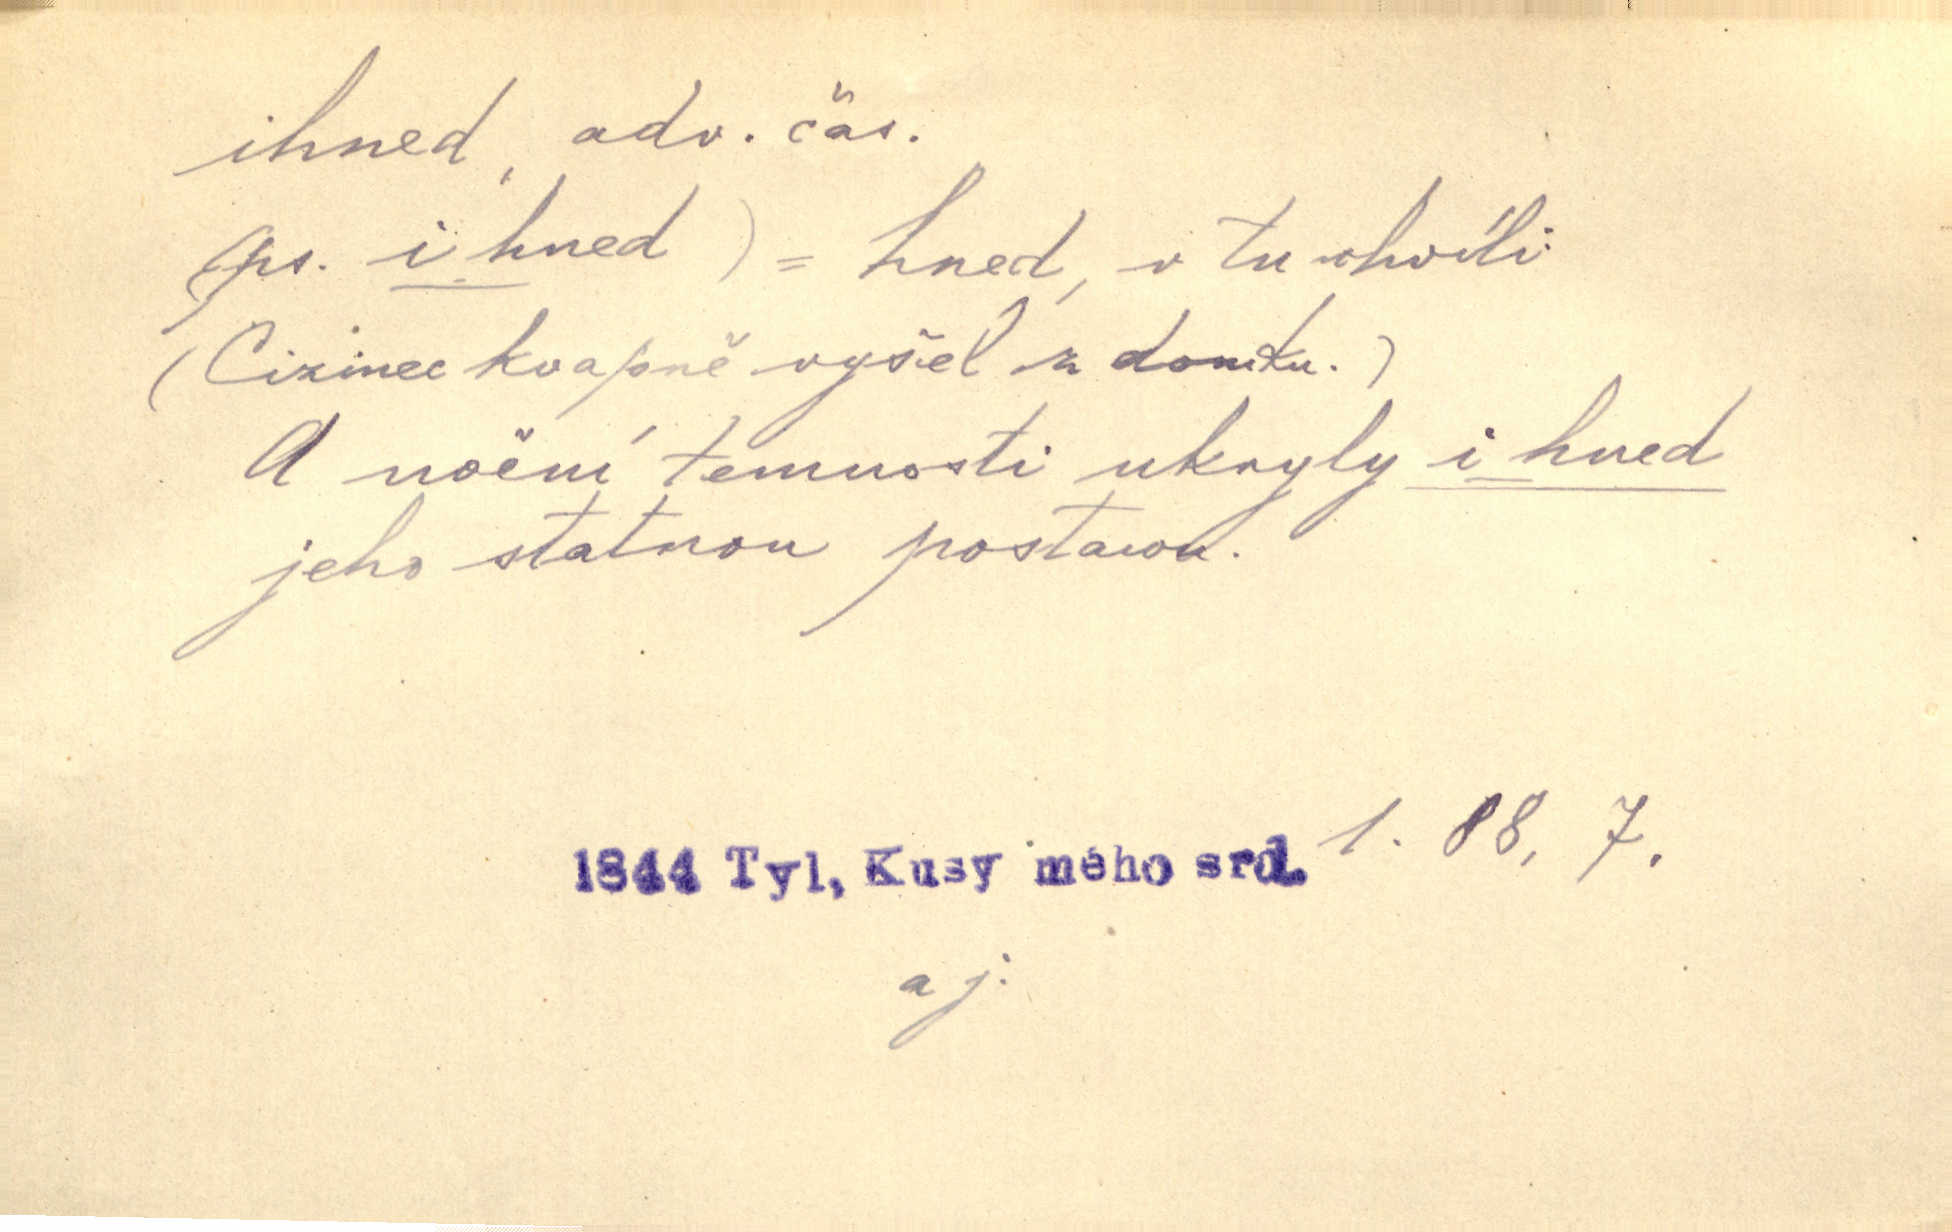 ihned, adv. čas.
(ps. i hned) = hned, v tu chvíli
(Cizinec kvapně vyšel z domku.)
A noční temnosti ukryly i hned
jeho statnou postavou.
1844 Tyl, Kusy mého srd. 1. 88, 7.
a j.